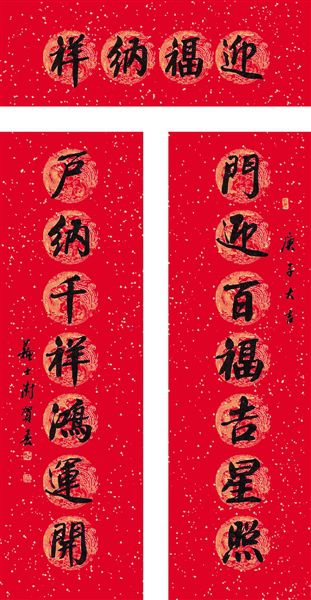 迎福納祥
門迎百福吉星照
庚子大吉
戶納千祥鴻運開